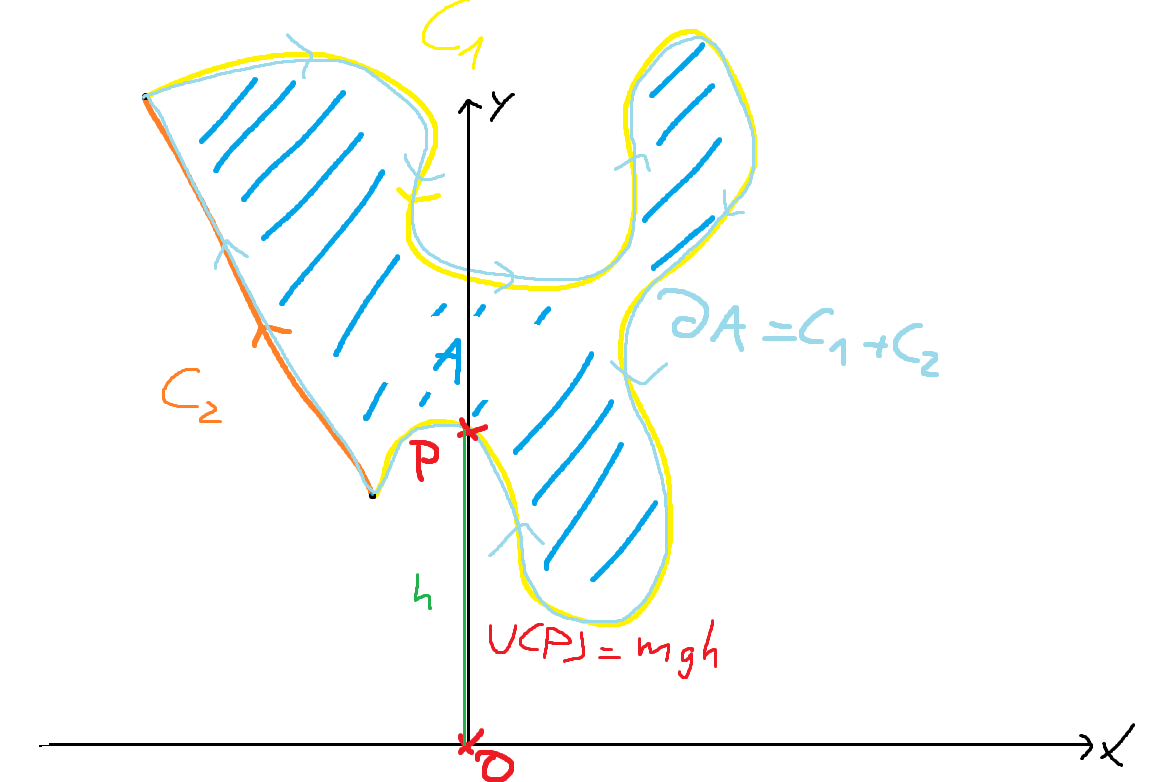 C₁
Y
∂A = C₁ + C₂
A
C₂
P
h
U(P) = mgh
X
O